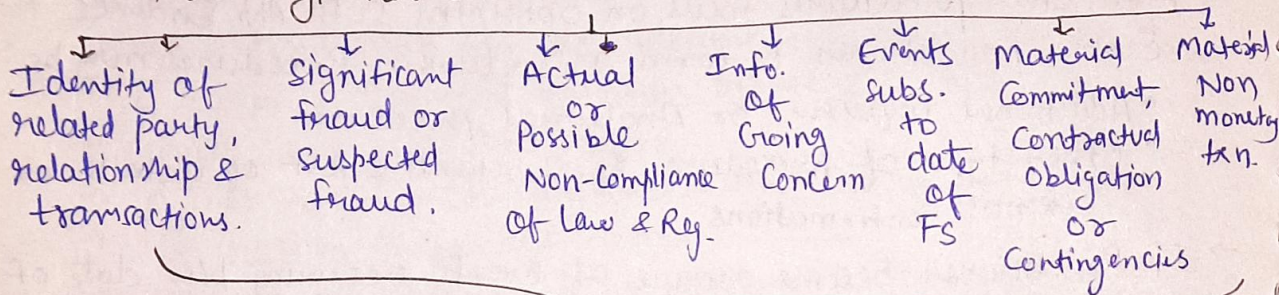 Identity of
related party,
relationship &
transactions.
Significant
fraud or
suspected
fraud.
Actual
or
Possible
Non-Compliance
Of Law & Reg.
Info.
of
Going
Concern
Events
subs.
to
date
of
FS
Material
Commitment,
Contractual
Obligation
or
Contingencies
Material
Non
monetry
txn.